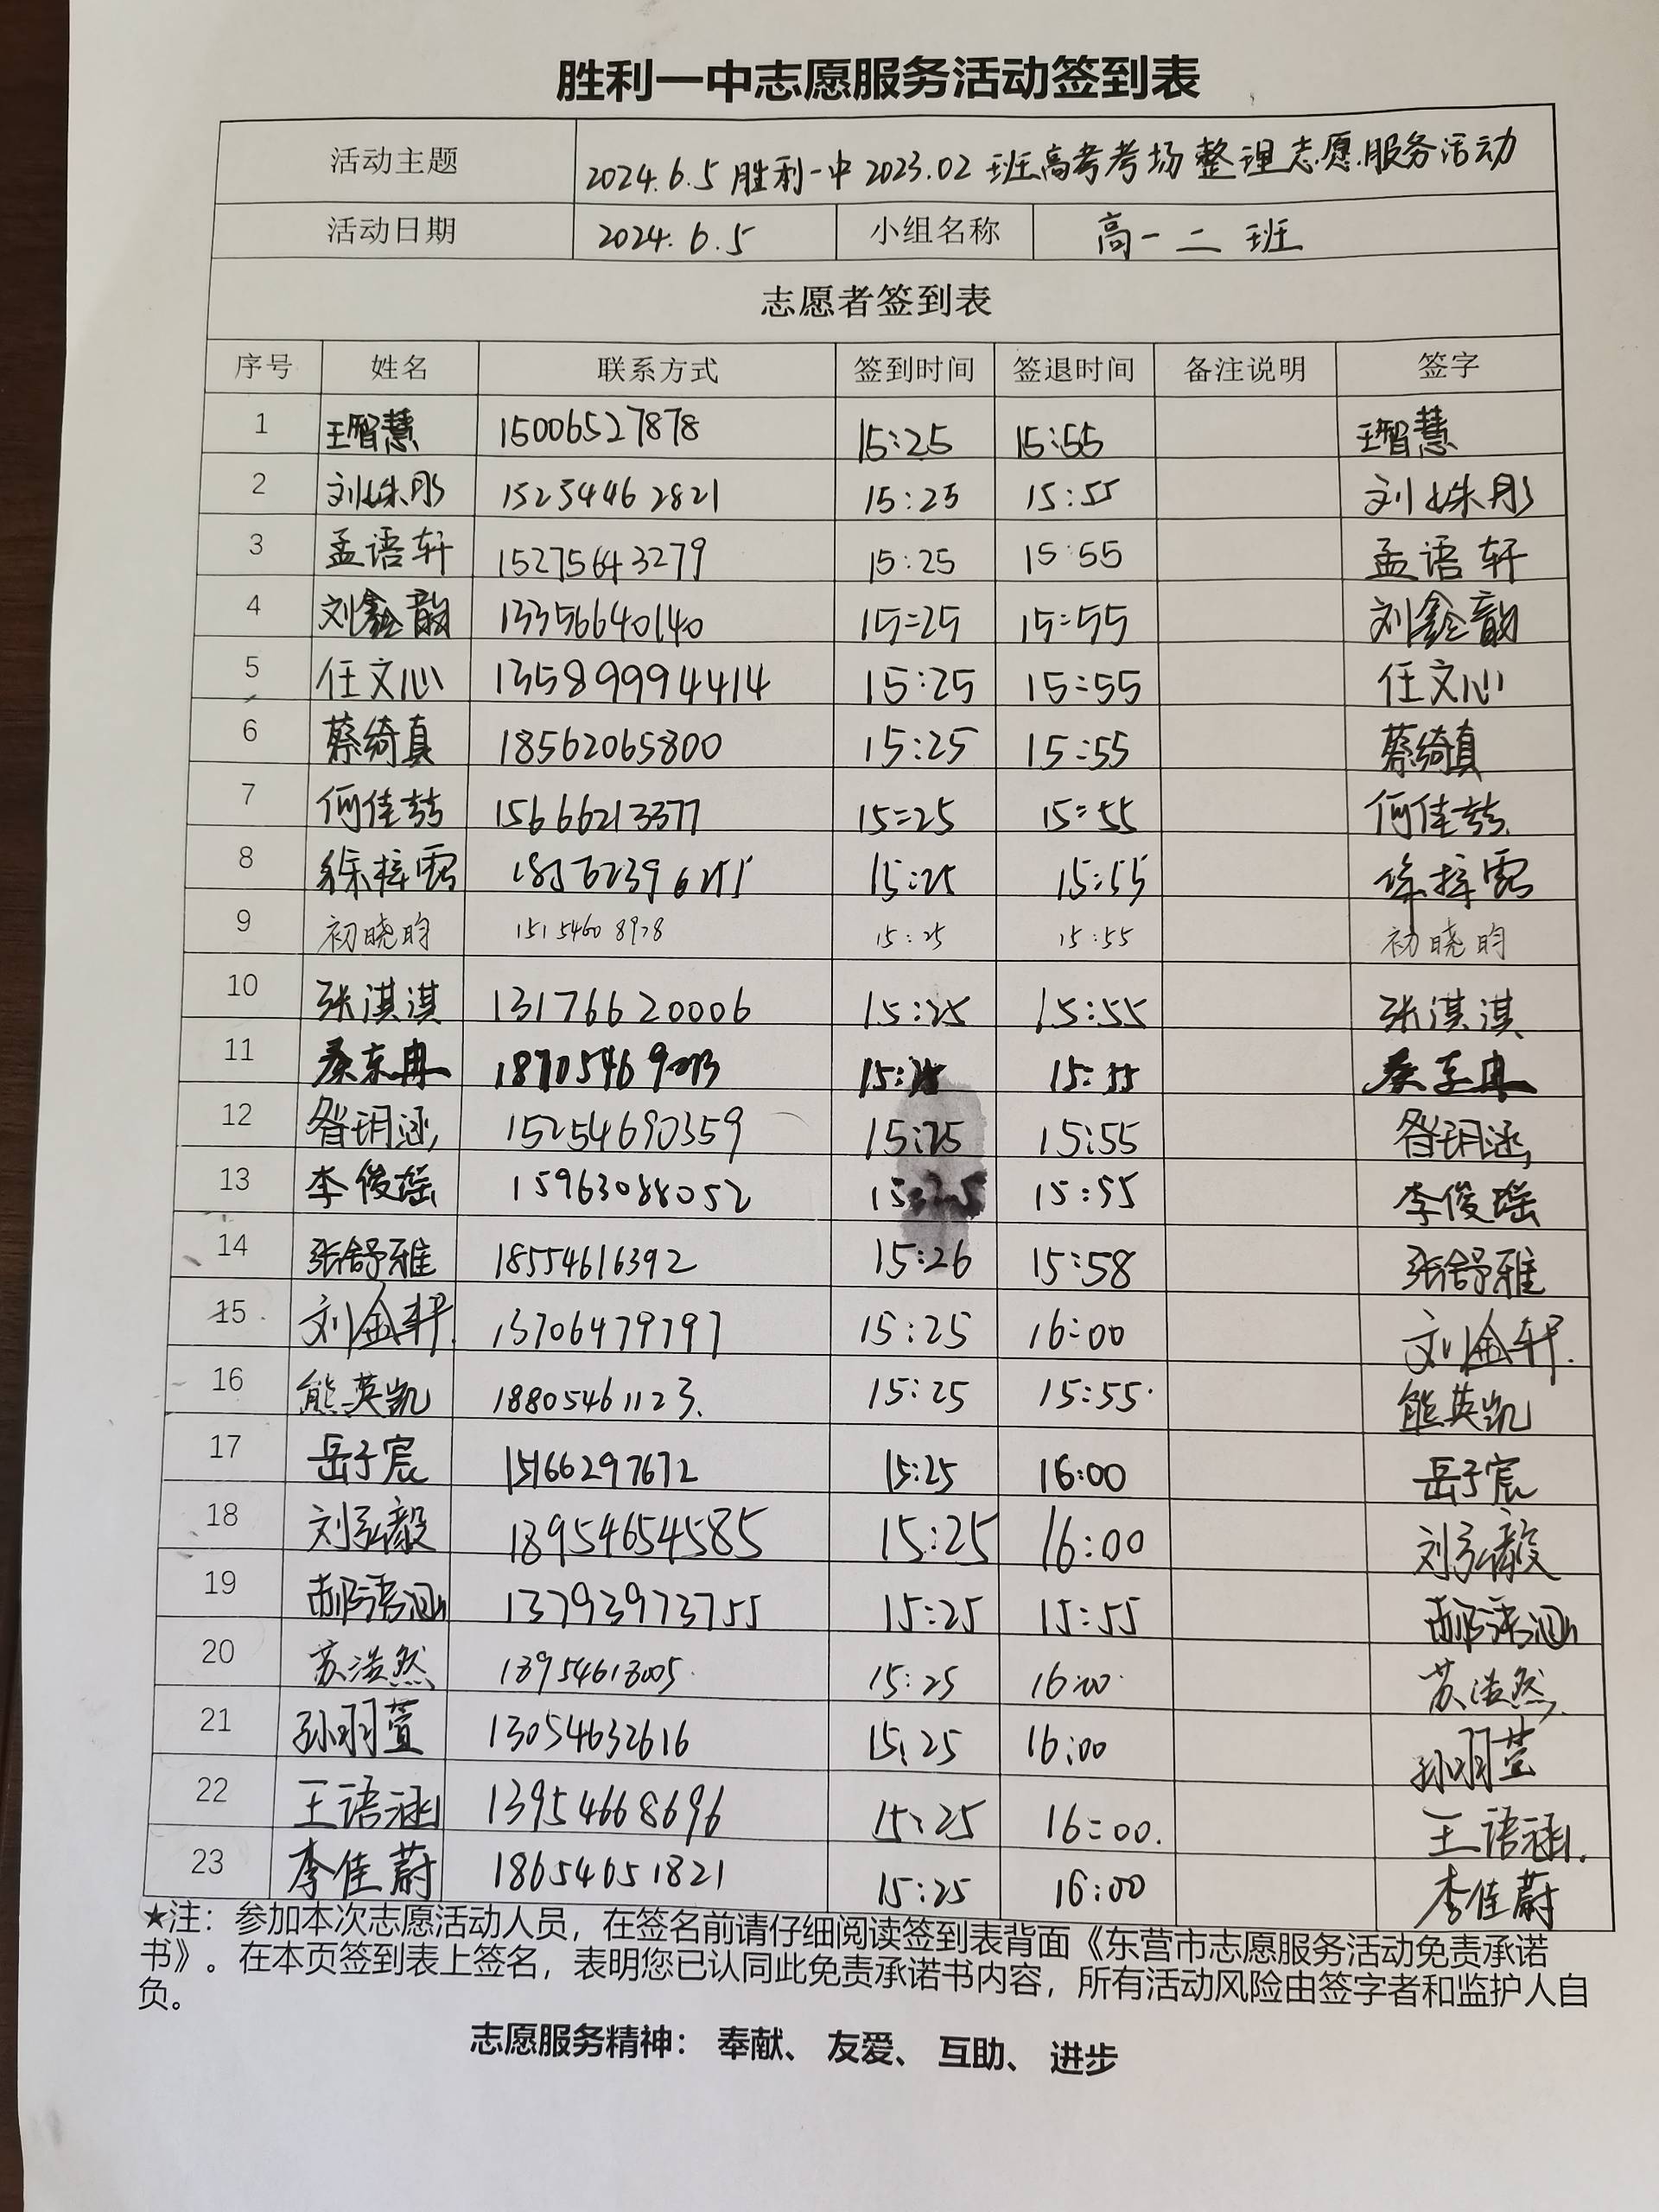 胜利一中志愿服务活动签到表
活动主题 2024.6.5胜利一中2023.02班高考考场整理志愿服务活动
活动日期 2024.6.5 小组名称 高一二班
志愿者签到表
序号 姓名 联系方式 签到时间 签退时间 备注说明 签字
1 王智慧 15006527878 15:25 15:55 王智慧
2 刘姝彤 15254462821 15:25 15:55 刘姝彤
3 孟语轩 15275643279 15:25 15:55 孟语轩
4 刘鑫韵 13356640140 15:25 15:55 刘鑫韵
5 任文心 135899994414 15:25 15:55 任文心
6 蔡绮真 18562065800 15:25 15:55 蔡绮真
7 何佳喆 15666213377 15:25 15:55 何佳喆
8 徐梓露 15:25 15:55 徐梓露
9 初晓昀 15154608928 15:25 15:55 初晓昀
10 张淇淇 13176620006 15:25 15:55 张淇淇
11 15:25 15:55
12 昝玥涵 15254690359 15:25 15:55 昝玥涵
13 李俊瑶 15963088052 15:25 15:55 李俊瑶
14 张舒雅 18554616392 15:26 15:58 张舒雅
15 刘金轩 13706479797 15:25 16:00 刘金轩
16 熊英凯 18805461123 15:25 15:55 熊英凯
17 岳子宸 15166297672 15:25 16:00 岳子宸
18 刘弘毅 18954654585 15:25 16:00 刘弘毅
19 郝语涵 13793973755 15:25 15:55 郝语涵
20 苏浩然 15:25 16:00 苏浩然
21 孙羽萱 13054632616 15:25 16:00 孙羽萱
22 王语涵 13954668696 15:25 16:00 王语涵
23 李佳蔚 18654651821 15:25 16:00 李佳蔚
★注：参加本次志愿活动人员，在签名前请仔细阅读签到表背面《东营市志愿服务活动免责承诺
书》。在本页签到表上签名，表明您已认同此免责承诺书内容，所有活动风险由签字者和监护人自
负。
志愿服务精神：奉献、友爱、互助、进步